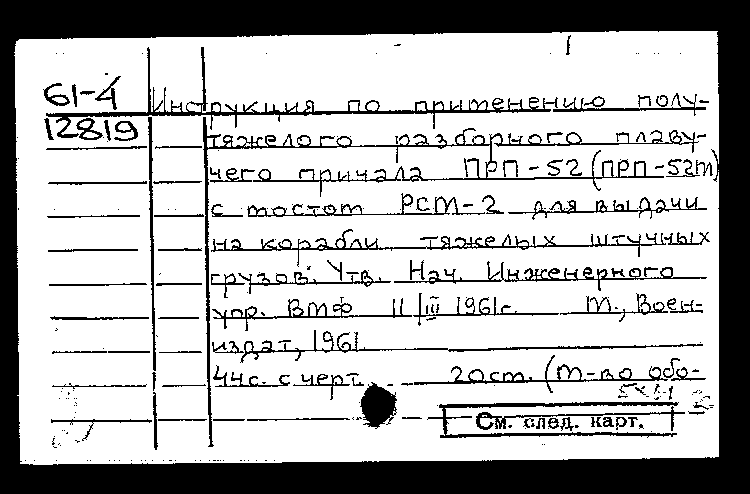 61-4
12819
Инструкция по применению полу-
тяжелого разборного плаву-
чего причала ПРП-52 (ПРП-52м)
с мостом РСМ-2 для выдачи
на корабли тяжелых штучных
грузов. Утв. Нач. Инженерного
упр. ВМФ 11/III 1961г. М., Воен-
издат, 1961.
44с. с черт. 20см. (М-во обо-
См. след. карт.